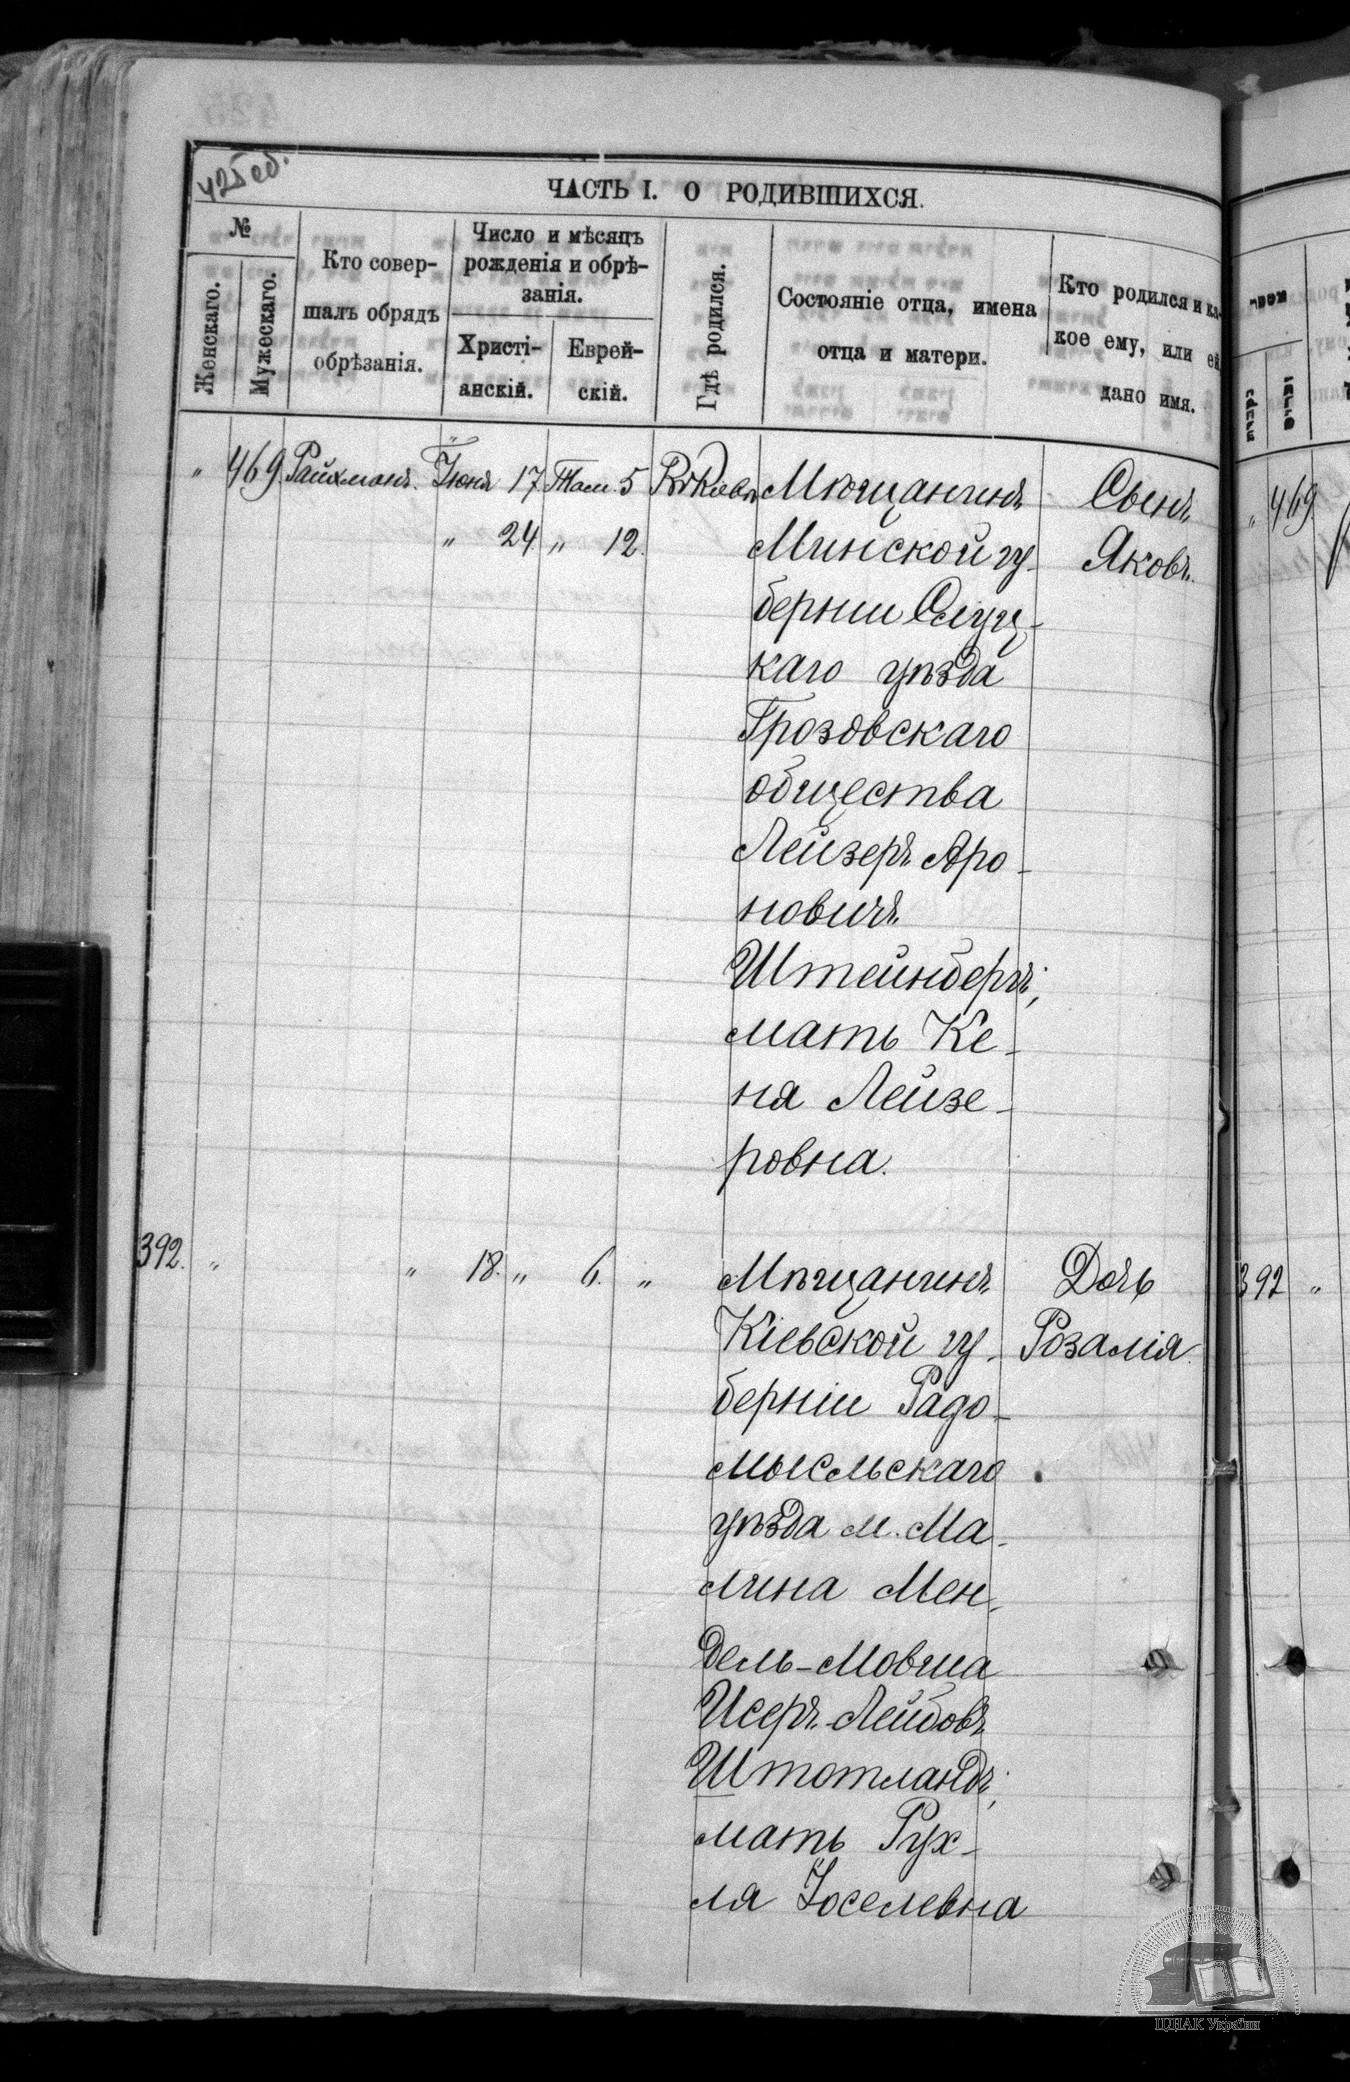 425 об.
ЧАСТЬ I. О РОДИВШИХСЯ.
№
Женскаго.
Мужескаго.
Кто совер-
шалъ обрядъ
обрѣзанія.
Число и мѣсяцъ
рожденія и обрѣ-
занія.
Христі-
анскій.
Еврей-
скій.
Гдѣ родился.
Состояніе отца, имена
отца и матери.
Кто родился и ка-
кое ему, или ей
дано имя.
" 469 Райхманъ. Іюня 17 Там. 5 Мѣщанинъ Сынъ
" 24 " 12. Минской гу- Яковъ.
берніи Слуц-
каго уѣзда
Грозовскаго
общества
Лейзеръ Аро-
новичъ
Штейнбергъ;
мать Ке-
ня Лейзе-
ровна.
392. " " 18. " 6. " Мѣщанинъ Дочь
Кіевской гу- Розалія.
берніи Радо-
мысльскаго
уѣзда м. Ма-
лина Мен-
дель-Мовша
Исеръ-Лейбовъ
Штотландъ;
мать Рух-
ля Іоселевна
זכרים
נקבות
" 469
392 "
ЦДІАК України